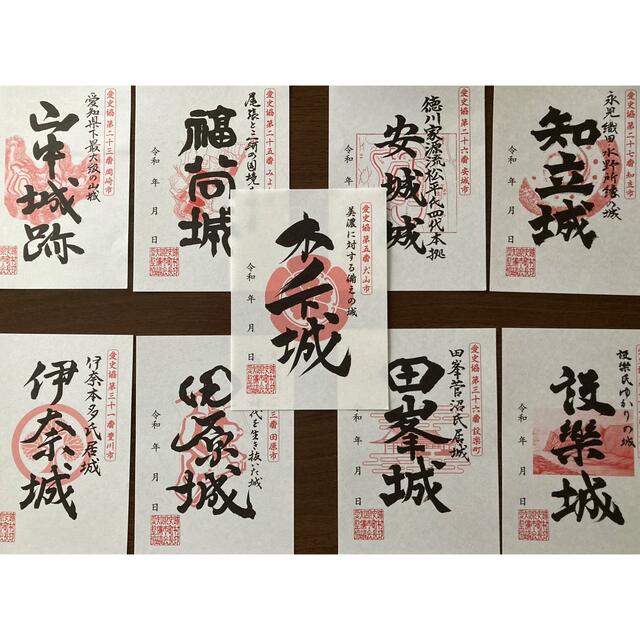 愛史協 第二十三番 岡崎市
愛知県下最大級の山城
山中城跡
令和 年 月 日
愛史協 第二十五番 みよ
尾張と三河の国境
福谷城
令和 年 月 日
愛史協 第二十六番 安城市
徳川家源流松平氏四代本拠
安城城
令和 年 月 日
愛史協 第二十七番 知立市
永見 織田 水野所縁の城
知立城
令和 年 月 日
愛史協 第五番 犬山市
美濃に対する備えの城
木ノ下城
令和 年 月 日
愛史協 第三十一番 豊川市
伊奈本多氏居城
伊奈城
令和 年 月 日
三番 田原市
代を生き抜いた城
田原城
月 日
愛史協 第三十六番 設楽町
田峯菅沼氏居城
田峯城
年 月 日
設楽氏ゆかりの城
設楽城
令和 年 月 日